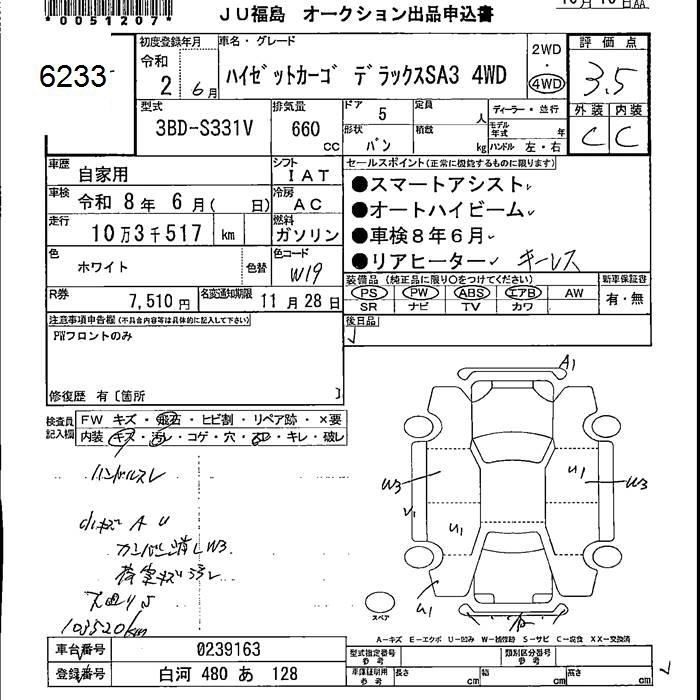 *0051207*
JU福島 オークション出品申込書
6233
初度登録年月
令和
2 6月
車名・グレード
ハイゼットカーゴ デラックスSA3 4WD
2WD
・
4WD
評価点
3.5
外装 内装
C C
型式
3BD-S331V
排気量
660
cc
ドア
5
定員
人
形状
バン
積載
kg
ディーラー・並行
モデル年式 年
ハンドル 左・右
車歴
自家用
シフト
IAT
車検
令和 8年 6月( 日)
冷房
AC
走行
10万3千517 km
燃料
ガソリン
色
ホワイト
色替
色コード
W19
R券
7,510円
名変通知期限
11月28日
セールスポイント(正常に機能するものに限ります)
●スマートアシスト
●オートハイビーム
●車検8年6月
●リアヒーター キーレス
装備品(純正品に限り○をつけてください)
PS PW ABS エアB AW
SR ナビ TV カワ
新車保証書
有・無
後日品
注意事項申告欄(不具合内容等は具体的に記入して下さい)
PWフロントのみ
修復歴 有〔箇所 〕
検査員記入欄
FW キズ・飛石・ヒビ割・リペア跡・×要
内装 キズ・汚レ・コゲ・穴・ヨレ・キレ・破レ
ハンドルスレ
小キズ A U
カンバン消し W3
荷室キズ汚レ
103520km
A1
W3
U1
U1
W3
U1
スペア
A-キズ E-エクボ U-凹み W-補修跡 S-サビ C-腐食 XX-交換済
車台番号
0239163
登録番号
白河 480 あ 128
型式指定番号
参考
類別区分番号
参考
車庫証明用
参考
長さ cm
幅 cm
高さ cm